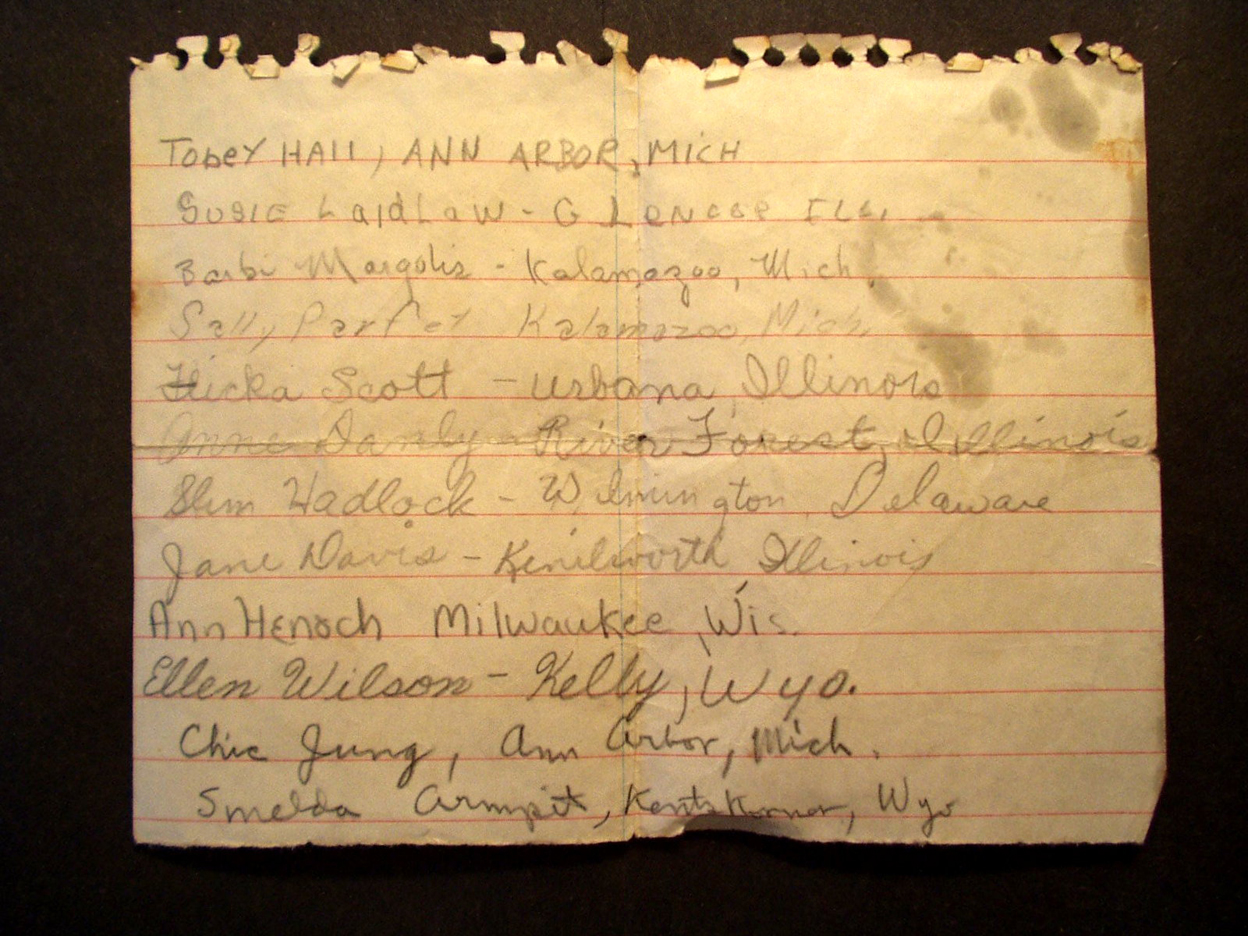 TOBEY HAll, ANN ARBOR, MICH
SUSIE LaidLaW - GLENCOE ILL.
Barbi Margolis - Kalamazoo, Mich.
Sally Parfet Kalamazoo, Mich.
Scott - Urbana, Illinois
Anne Danly - River Forest, Illinois
Slim Hadlock - Wilmington, Delaware
Jane Davis - Kenilworth Illinois
Ann Henoch Milwaukee, Wis.
Ellen Wilson - Kelly, Wyo.
Chic Jung, Ann Arbor, Mich.
Smelda Armpit, Kents Korner, Wyo